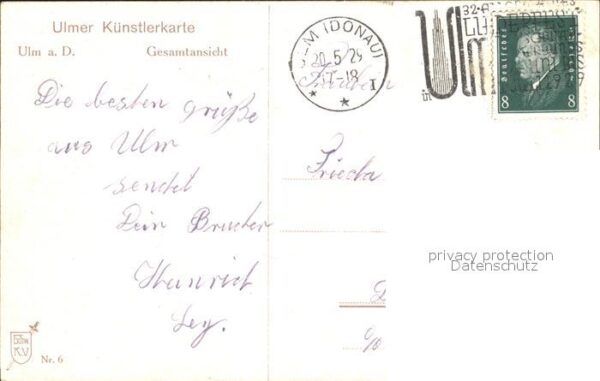 Ulmer Künstlerkarte
Ulm a. D. Gesamtansicht
ULM (DONAU)
20.5.29
17-18
I
in Ulm
Deutsches Reich
8 8
Fräulein
Frieda
Die besten grüße
aus Ulm
sendet
Dein Bruder
Heinrich
privacy protection
Datenschutz
K.V
Nr. 6